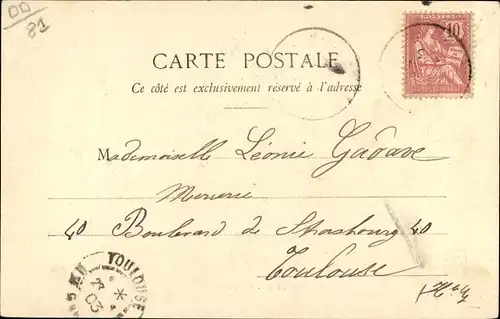 DD
81
10
CARTE POSTALE
Ce côté est exclusivement réservé à l'adresse
Mademoiselle Léonie Gadave
40 Boulevard de Strasbourg 40
Toulouse
TOULOUSE
03